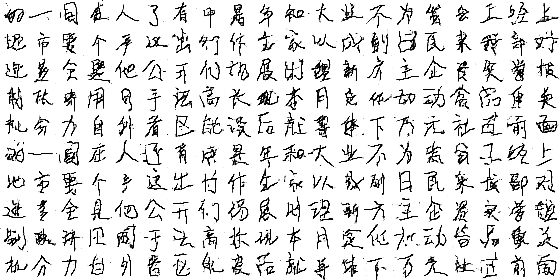 的一国在人了有中是年和大业不为发会工经上
地市要个产这出行作生家以成到日民来我部对
进多全是他公开们场展时理新方主企资实学报
制政济用同于法高长现本月定化加动合品重关
机分力自外者区能设后就等体下万元社过前面
的一国在人了有中是年和大业不为发会工经上
地市要个产这出行作生家以成到日民来我部对
进多全是他公开们场展时理新方主企资实学报
制政济用同于法高长现本月定化加动合品重关
机分力自外者区能设后就等体下万元社过前面